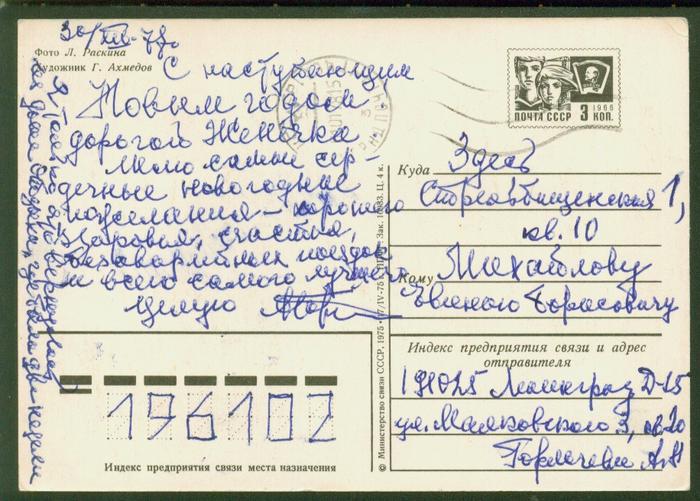 30/XII-77г.
Фото Л. Раскина
Художник Г. Ахмедов
С наступающим
Новым годом
дорогой Женечка
Мои самые сер-
дечные новогодние
пожелания - хорошего
здоровья, счастья,
безаварийных поездок
и всего самого лучшего
Целую
Я только что вернулась
из дома отдыха, где была две недели
ПОЧТА СССР
1966
3 КОП.
Куда Здесь
Стремянная 1,
кв. 10
Кому Михайлову
Евгению Борисовичу
Индекс предприятия связи и адрес
отправителя
191025 Ленинград Д-25
ул. Маяковского 3, кв. 20
196102
Индекс предприятия связи места назначения
© Министерство связи СССР, 1975